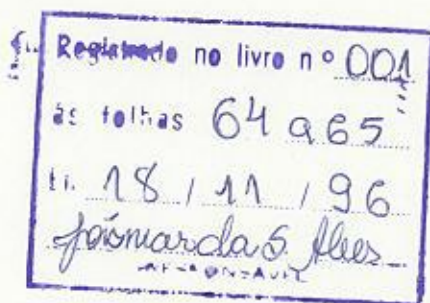 Registrado no livro nº 001
às folhas 64 a 65
18 / 11 / 96
Alves